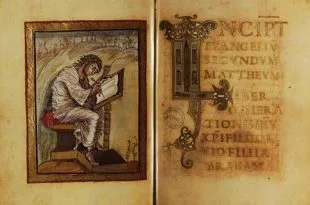 INCIPT
EVANGELIV
SECVNDVM
MATTHEVM
LIBER
GENERA
TIONISIHV
XPIFILIIDA
VIDFILII
ABRAHAM